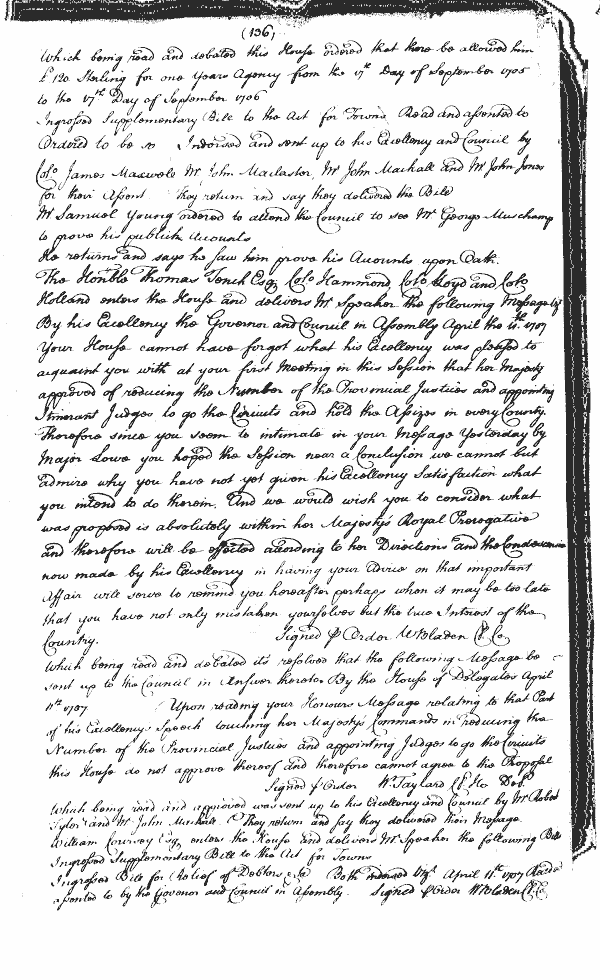 (136)
Which being read and debated this House ordered that there be allowed him
£ 120 Sterling for one Years Agency from the 17th Day of September 1705
to the 17th Day of September 1706
Ingrossed Supplementary Bill to the Act for Towns Read and assented to
Ordered to be so Indorsed and sent up to his Excellency and Council by
Colo James Maxwell Mr John Maclaster, Mr John Mackall and Mr John Jones
for their Assent They return and say they delivered the Bill
Mr Samuel Young ordered to attend the Council to see Mr George Muschamp
to prove his publick Accounts
He returns and says he saw him prove his Accounts upon Oath.
The Honble Thomas Tench Esq Colo Hammond, Colo Lloyd and Colo
Holland enters the House and delivers Mr Speaker the following Message Vizt
By his Excellency the Governor and Council in Assembly April the 11th 1707
Your House cannot have forgot what his Excellency was pleased to
acquaint you with at your first Meeting in this Session that her Majesty
approved of reducing the Number of the Provincial Justices and appointing
Itinerant Judges to go the Circuits and hold the Assizes in every County.
Therefore since you seem to intimate in your Message Yesterday by
Major Lowe you hoped the Session near a Conclusion we cannot but
admire why you have not yet given his Excellency Satisfaction what
you intend to do therein. And we would wish you to consider what
was proposed is absolutely within her Majestys Royal Prerogative
and therefore will be effected according to her Directions and the Condescension
now made by his Excellency in having your Advice on that important
Affair will serve to remind you hereafter perhaps when it may be too late
that you have not only mistaken yourselves but the true Interest of the
Country. Signed p Order W Bladen Cl Co
Which being read and debated its resolved that the following Message be
sent up to the Council in Answer thereto By the House of Delegates April
11th 1707 Upon reading your Honours Message relating to that Part
of his Excellencys Speech touching her Majestys Commands in reducing the
Number of the Provincial Justices and appointing Judges to go the Circuits
this House do not approve thereof and therefore cannot agree to the Proposal
Signed p Order W Taylard Cl Ho Del.
Which being read and approved was sent up to his Excellency and Council by Mr Robert
Tyler and Mr John Mackall. They return and say they delivered their Message
William Coursey Esq enters the House and delivers Mr Speaker the following Bills
Ingrossed Supplementary Bill to the Act for Towns
Ingrossed Bill for Relief of Debtors &ca Both indorsed Vizt April 11th 1707 Read
assented to by the Govenor and Council in Assembly. Signed p Order W Bladen Cl Co